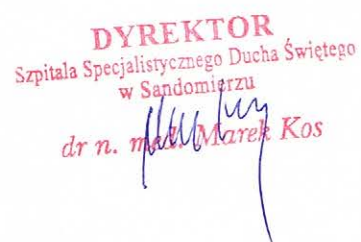 DYREKTOR
Szpitala Specjalistycznego Ducha Świętego
w Sandomierzu
dr n. med. Marek Kos